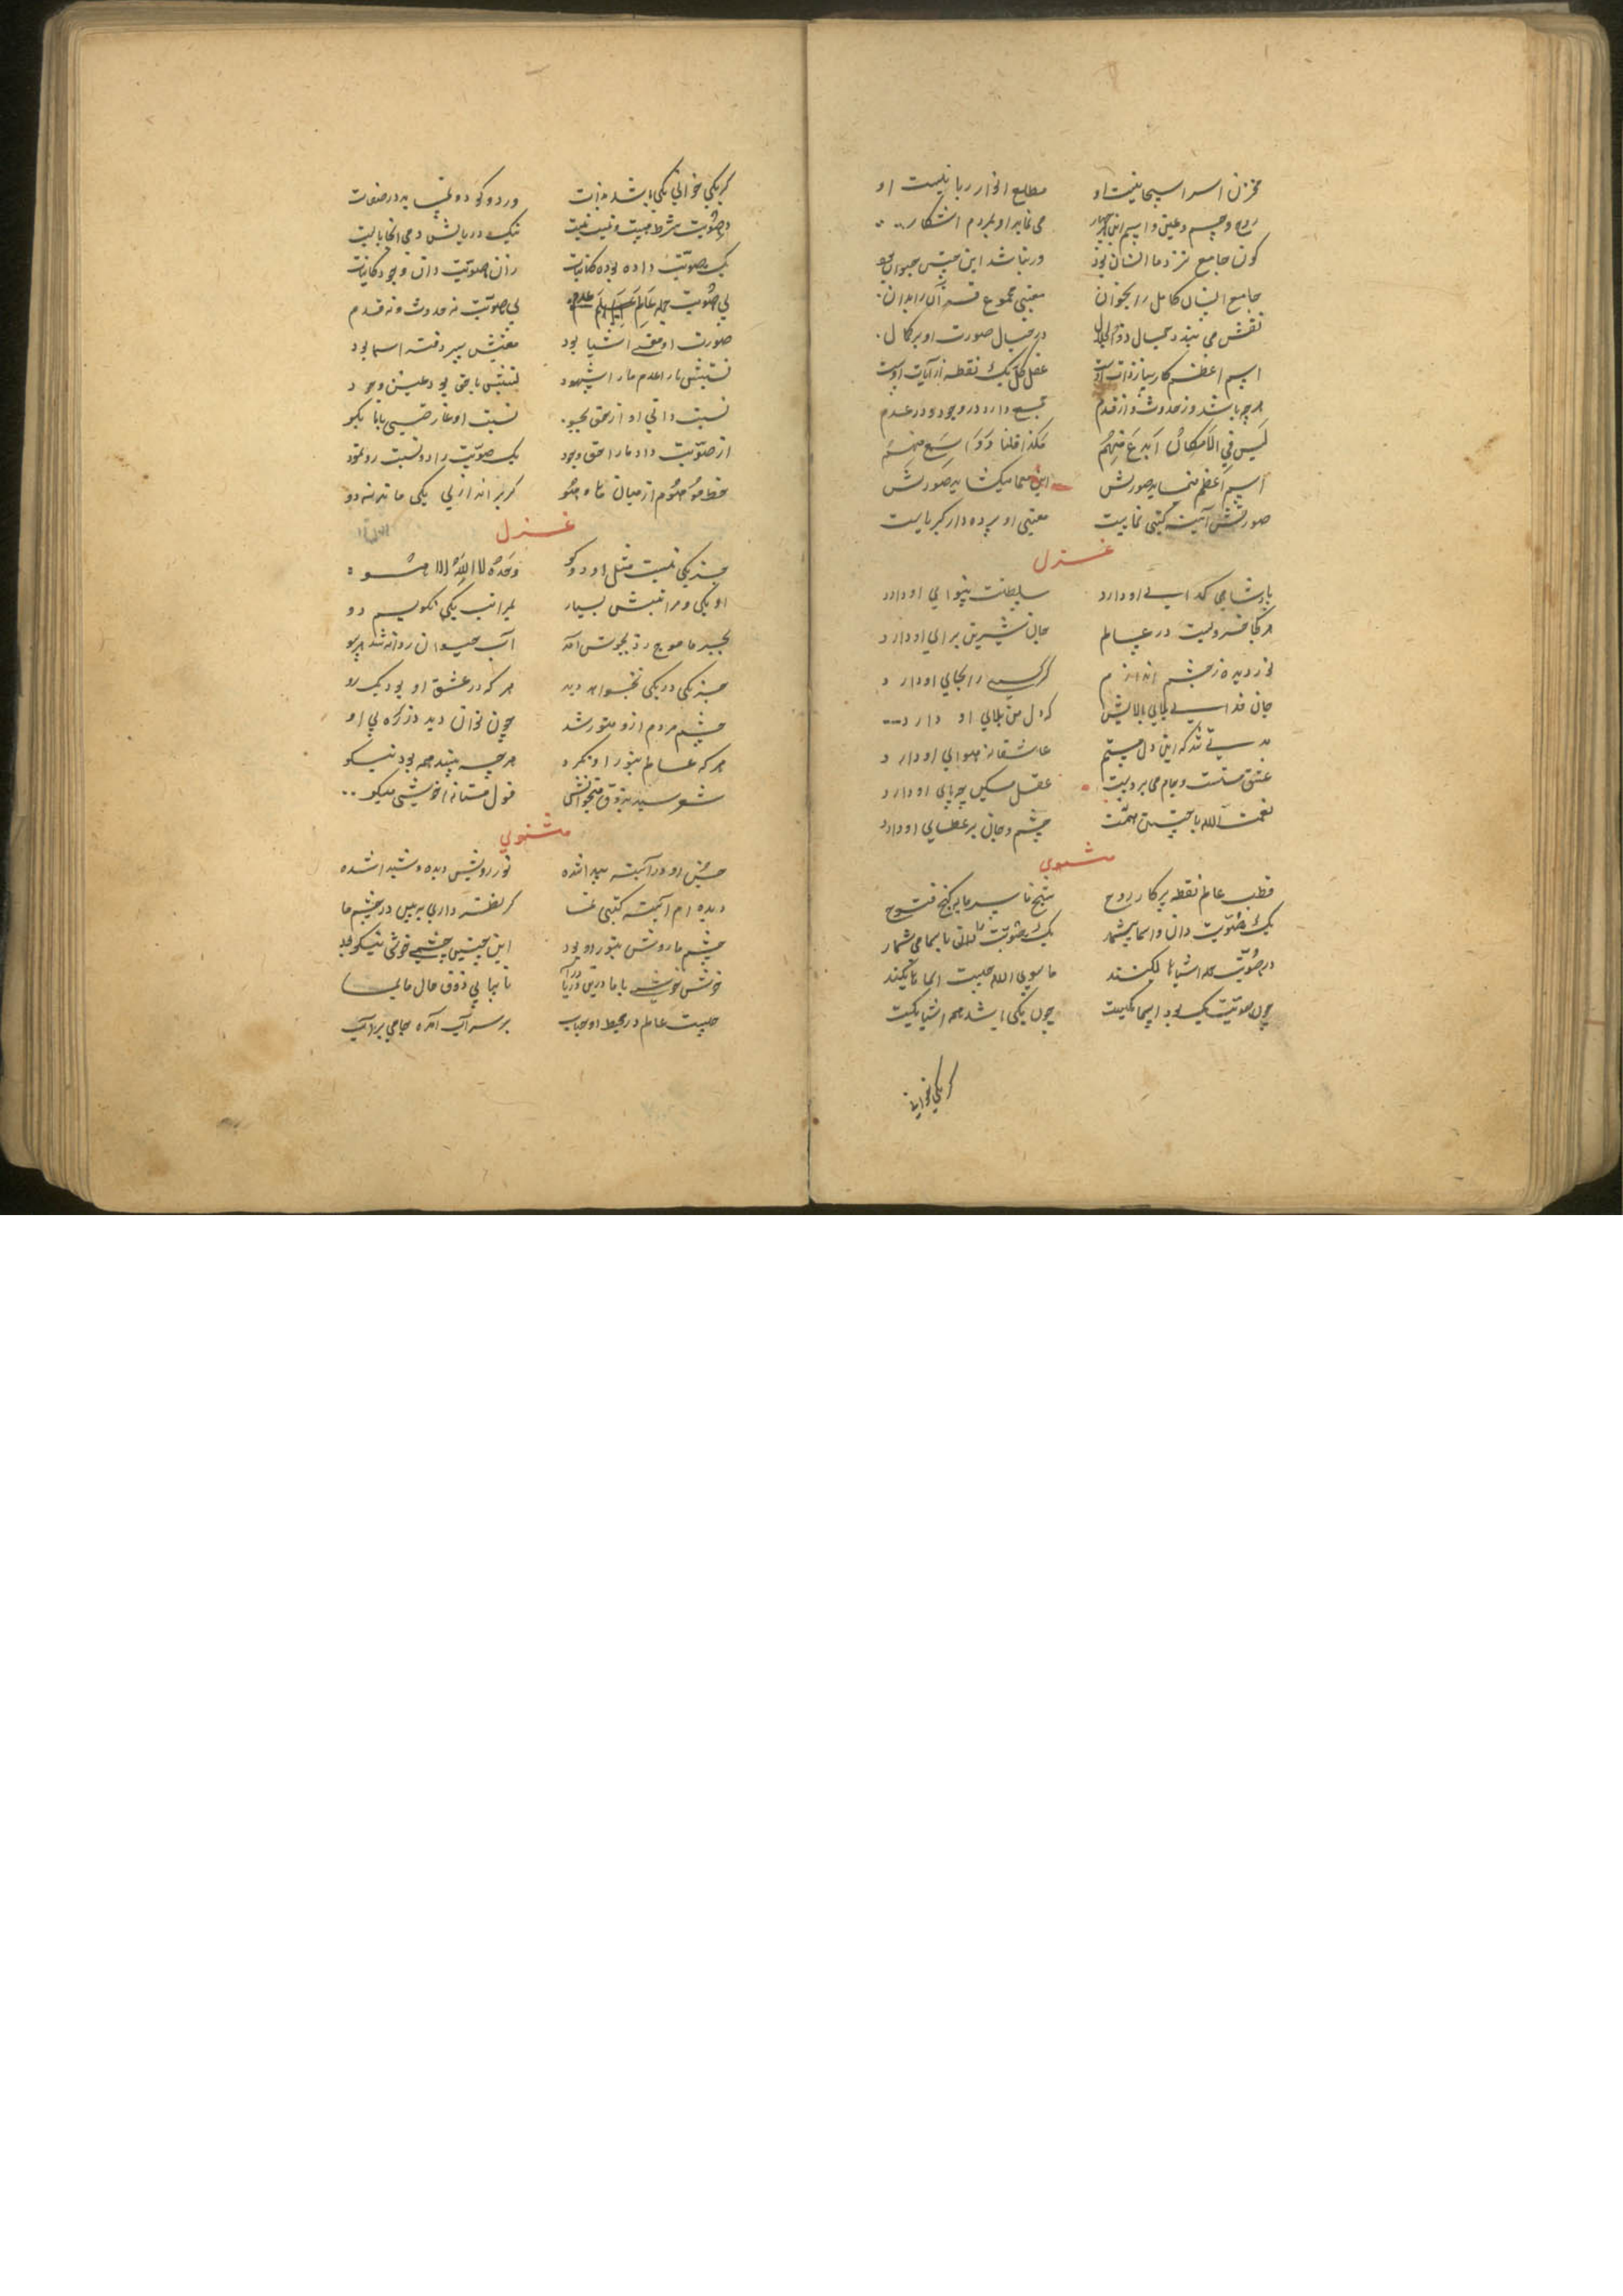 مخزن اسرار سبحانیست او مطلع انوار ربانیست او
روح و جسم و عین و اسم این چهار می نماید او بمردم آشکار
کون جامع نزد ما انسان بود ورنباشد این چنین حیوان بود
جامع انسان کامل را بخوان معنی مجموع قرآن را بدان
نقش می بندد خیال ذوالجلال در خیال صورت او بر کمال
اسم اعظم کارساز ذات اوست عقل کل یک نقطه از آیات اوست
هرچه باشد از حدوث و از قدم جمع دارد در وجود و در عدم
لیس فی الامکان ابدع منهم هکذا قلنا و اسمع منهم
اسم اعظم مینماید صورتش این معما میکشاید صورتش
صورتش آینه گیتی نماست معنی او پرده دار کبریاست
غزل
پادشاهی گدای او دارد سلطنت بینوای او دارد
هر کجا خسرویست در عالم جان شیرین برای او دارد
نور دیده ز چشم اندازم گر کسی را بجای او دارد
جان فدای بلای بالایش که دل من بلای او دارد
مدتی شد که این دل عاشقانه هوای او دارد
عشق مست و جام می بر دست عقل مسکین چه پای او دارد
نعمت الله با چنین همت چشم و جان بر عطای او دارد
مثنوی
قطب عالم نقطه پرکار روح شیخ ما سرمایه گنج فتوح
یک هویت دان و اسما بیشمار یک هویت با اسما می شمار
در هویت جمله اشیا ماسوی الله چیست اسما
چون هویت یک بود اسما یکیست چون یکی باشد همه اشیا یکیست
گر یکی خوانی
گر یکی خوانی یکی باشد بذات ور دو گوئی دو نماید در صفات
در هویت شرط هیچ و نیست نیست نیک دریابش
یک هویت داده بوده کائنات زان هویت دان وجود کائنات
بی هویت جمله عالم عدم بی هویت نه حدوث و نه قدم
صورت او اشیا بود معنیش سر دفتر اسما بود
نسبتش با ما عدم ما را شهود نسبتش با حق بود عین وجود
نسبت ذاتی او از حق بجو نسبت او با ما بگو
از هویت داد ما را حق وجود یک هویت را دو نسبت رو نمود
خط موهوم از میان ما و هو گر براندازی یکی ماند نه دو
غزل
جز یکی نیست مثل او دو گو وحده لا اله الا هو
او یکی و مراتبش بسیار بمراتب یکی نگویم دو
بحر ما موج زد بجوش آمد آب حیوان روانه شد هر سو
جز یکی در یکی نخواهد دید هر که در عشق او بود یک رو
چشم مردم ازو منور شد چون توان دید دیگری او
هر که عالم بنور او نگرد هر چه بیند همه بود نیکو
شعر سید بذوق میخوانش قول مستانه خوشی میگو
مثنوی
حسن او در آینه پیدا شده نور رویش دیده و شیدا شده
دیده ام آینه گیتی نما گر نظر داری ببین در چشم ما
چشم ما روشن بنور او بود این چنین چشمی خوشی نیکو بود
خوش خوشی با ما درین دریا درآ تا بیابی ذوق حال ما بما
چیست عالم در محیط او حباب بر سر آب آمده جامی پر آب